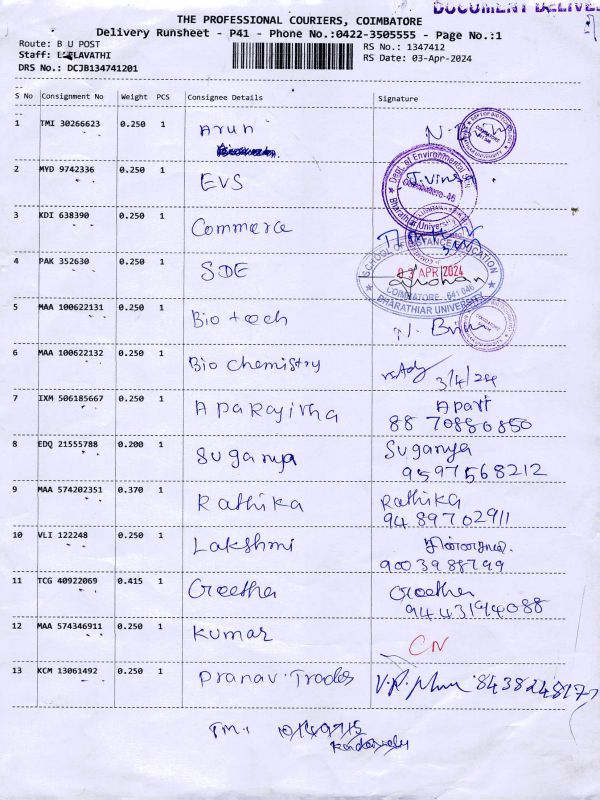 DOCUMENT DELIVE
THE PROFESSIONAL COURIERS, COIMBATORE
Delivery Runsheet - P41 - Phone No.:0422-3505555 - Page No.:1
Route: B U POST
RS No.: 1347412
Staff: LEELAVATHI
RS Date: 03-Apr-2024
DRS No.: DCJB134741201
S No Consignment No Weight PCS Consignee Details Signature
1 TMI 30266623 0.250 1 Arun
2 MYD 9742336 0.250 1 EVS J. Vinse
Dept. of Environmental
Coimbatore-46
Bharathiar University
3 KDI 638390 0.250 1 Commerce
4 PAK 352630 0.250 1 SDE
SCHOOL OF DISTANCE EDUCATION
03 APR 2024
COIMBATORE - 641 046
BHARATHIAR UNIVERSITY
5 MAA 100622131 0.250 1 Bio tech
6 MAA 100622132 0.250 1 Bio chemistry 3/4/24
7 IXM 506185667 0.250 1 Aparajitha Apart
88 70880850
8 EDQ 21555788 0.200 1 Suganya Suganya
9597568212
9 MAA 574202351 0.370 1 Rathika Rathika
9489702911
10 VLI 122248 0.250 1 Lakshmi
9003988799
11 TCG 40922069 0.415 1 Greetha Greetha
12 MAA 574346911 0.250 1 Kumar CN
13 KCM 13061492 0.250 1 Pranav. Trades
TM.1